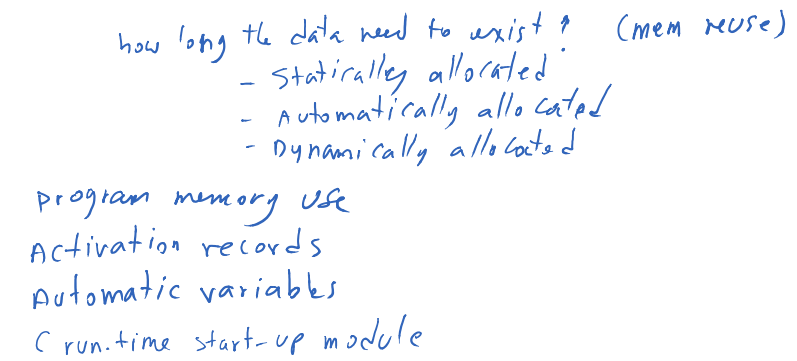 how long the data need to exist? (mem reuse)
- Statically allocated
- Automatically allocated
- Dynamically allocated
program memory use
Activation records
Automatic variables
C run.time start-up module